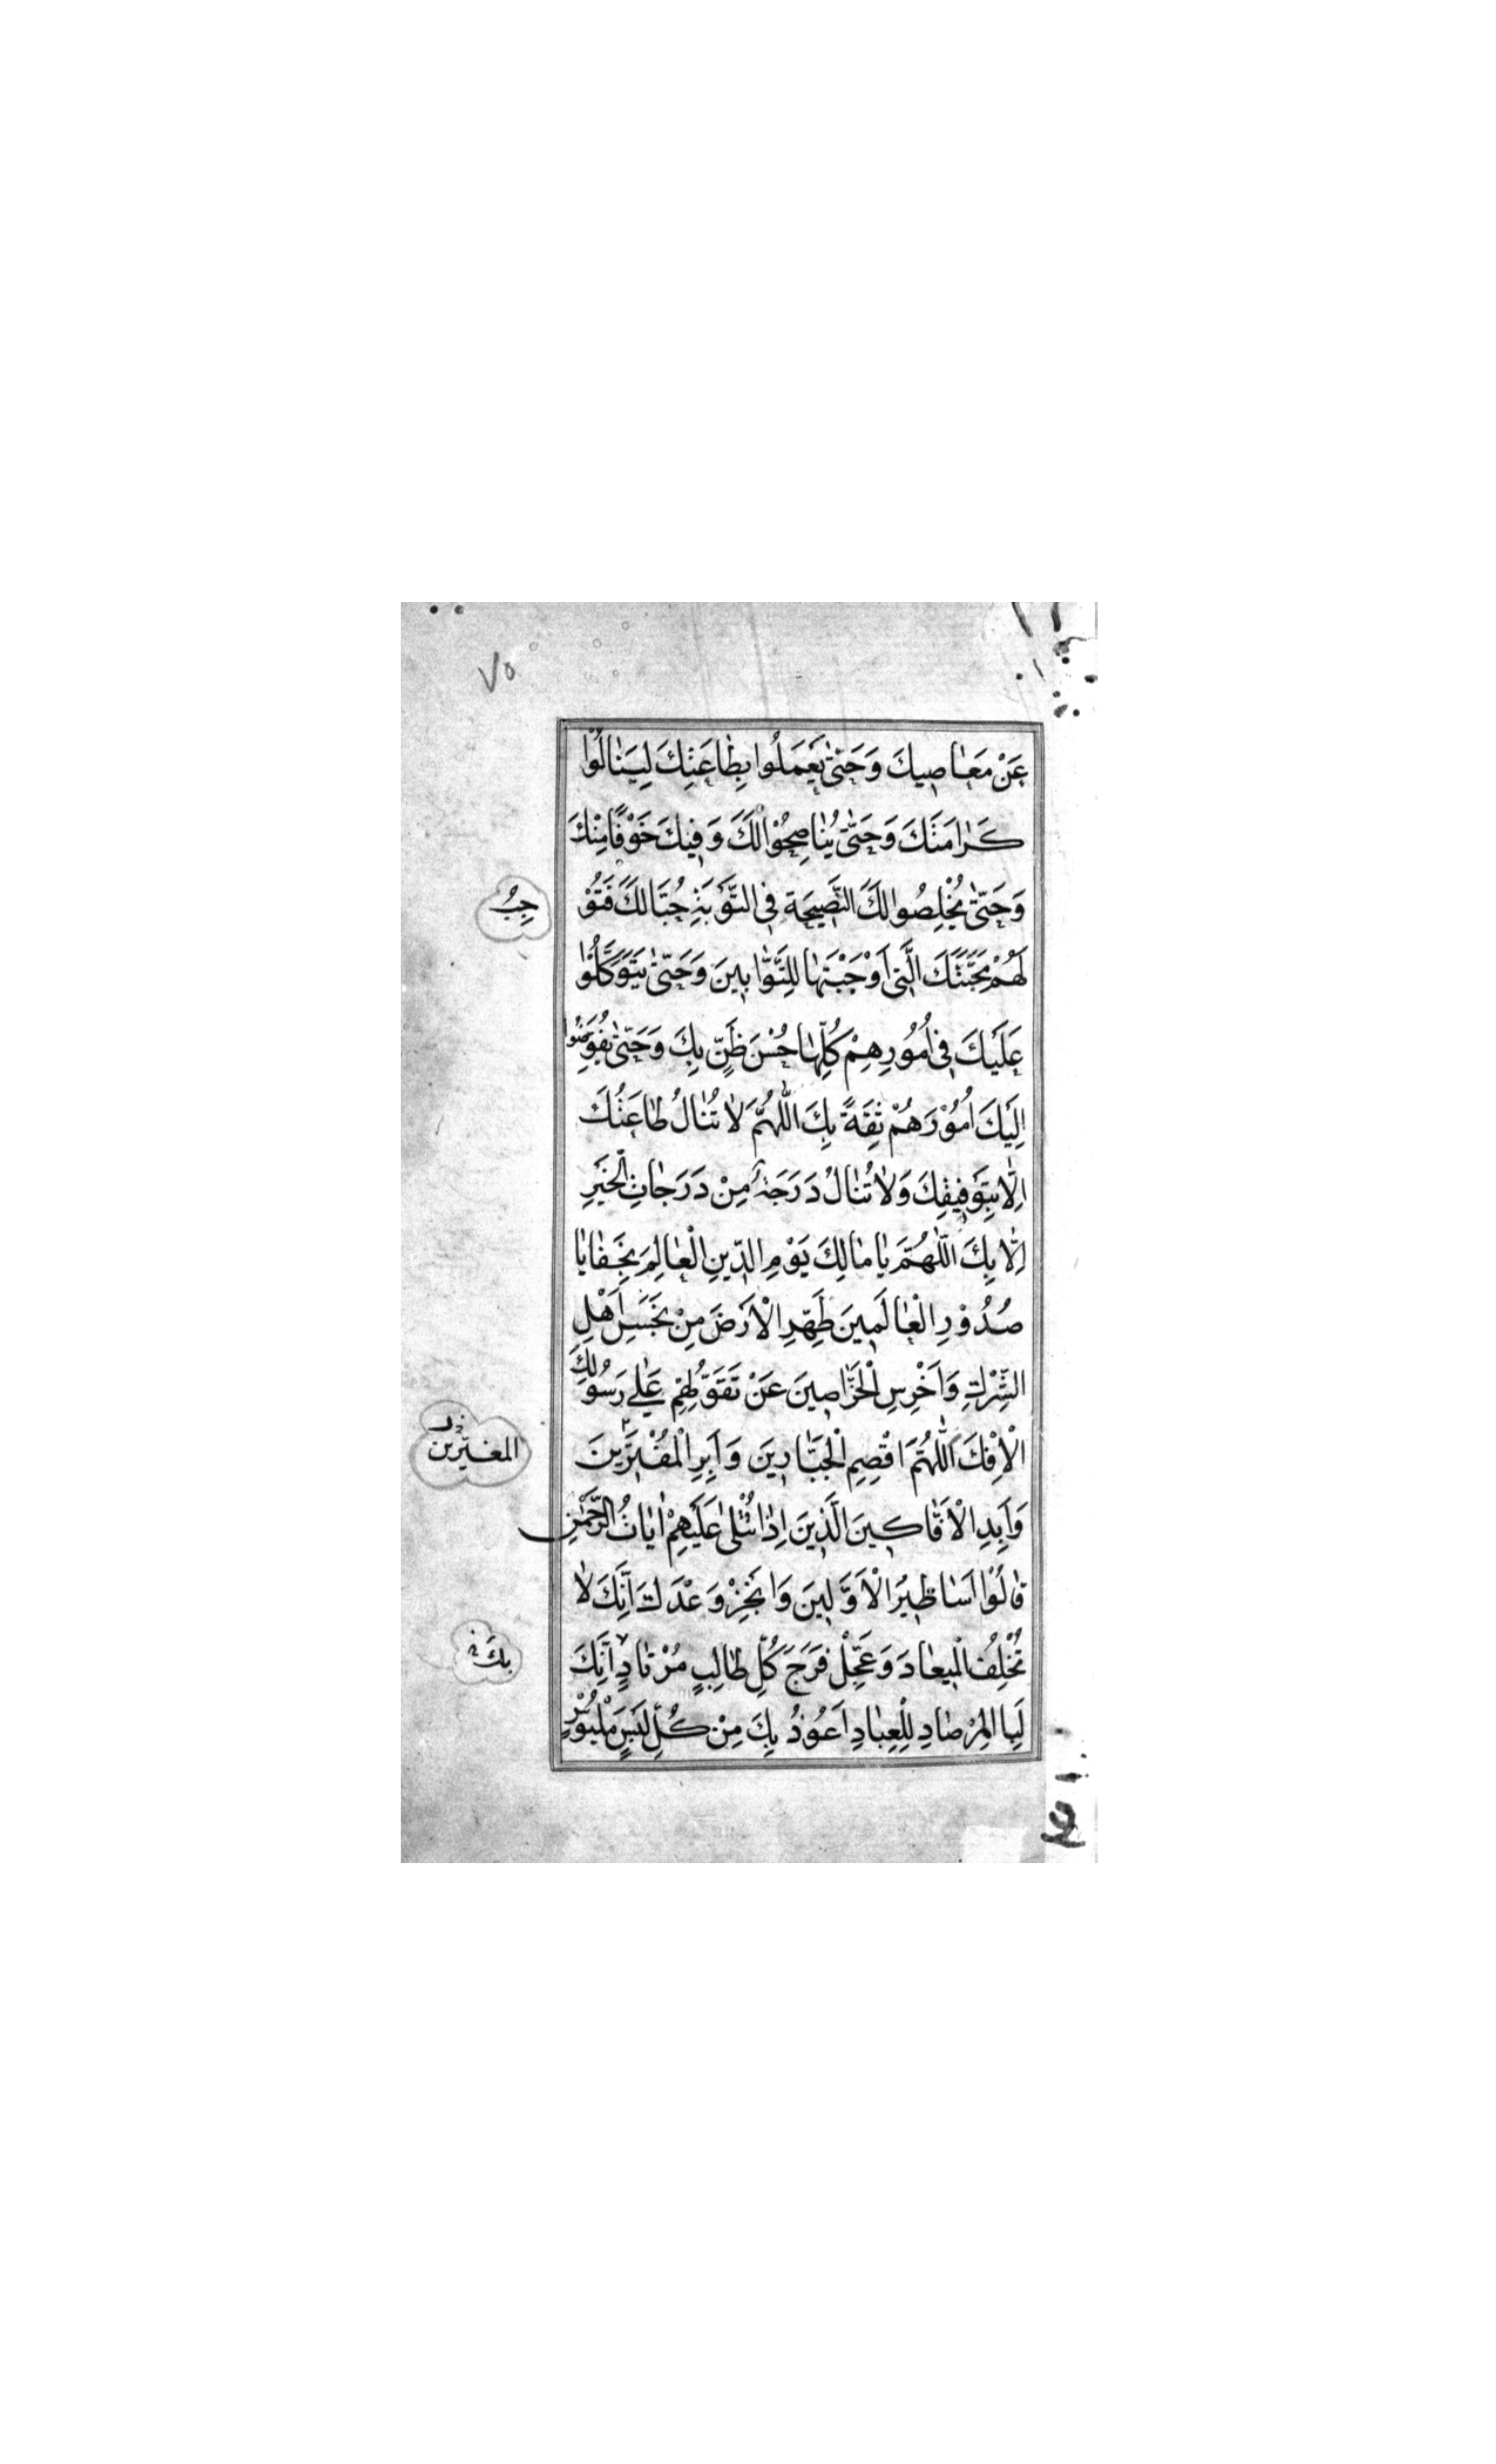 ٧٥
عَنْ مَعٰاصِيكَ وَحَتّٰى يَعْمَلُوا بِطٰاعَتِكَ لِيَنٰالُوْا
كَرٰامَتَكَ وَحَتّٰى يُنٰاصِحُوْا لَكَ وَفِيكَ خَوْفًا مِنْكَ
وَحَتّٰى يُخْلِصُوا لَكَ النَّصِيحَةَ فِى التَّوْبَةِ حُبًّا لَكَ فَتُوْ
جِبُ
لَهُمْ مَحَبَّتَكَ الَّتِى اَوْجَبْتَهٰا لِلتَّوّٰابِينَ وَحَتّٰى يَتَوَكَّلُوْا
عَلَيْكَ فِى اُمُورِهِمْ كُلِّهٰا حُسْنَ ظَنٍّ بِكَ وَحَتّٰى يُفَوِّضُوا
اِلَيْكَ اُمُوْرَهُمْ ثِقَةً بِكَ اَللّٰهُمَّ لاٰ تُنٰالُ طٰاعَتُكَ
اِلّٰا بِتَوْفِيقِكَ وَلاٰ تُنٰالُ دَرَجَةٌ مِنْ دَرَجٰاتِ الْخَيْرِ
اِلّٰا بِكَ اَللّٰهُمَّ يٰا مٰالِكَ يَوْمِ الدِّينِ الْعٰالِمَ بِخَفٰايٰا
صُدُورِ الْعٰالَمِينَ طَهِّرِ الْاَرْضَ مِنْ نَجَسِ اَهْلِ
الشِّرْكِ وَاَخْرِسِ الْخَرّٰاصِينَ عَنْ تَقَوُّلِهِمْ عَلٰى رَسُولِكَ
الْاِفْكَ اَللّٰهُمَّ اقْصِمِ الْجَبّٰارِينَ وَاَبِرِ الْمُفْتَرِينَ
المغيّرين
وَاَبِدِ الْاَفّٰاكِينَ الَّذِينَ اِذٰا تُتْلٰى عَلَيْهِمْ اٰيٰاتُ الرَّحْمٰنِ
قٰالُوْا اَسٰاطِيرُ الْاَوَّلِينَ وَاَنْجِزْ وَعْدَكَ اِنَّكَ لاٰ
تُخْلِفُ الْمِيعٰادَ وَعَجِّلْ فَرَجَ كُلِّ طٰالِبٍ مُرْتٰادٍ اِنَّكَ
بِكَ
لَبِالْمِرْصٰادِ لِلْعِبٰادِ اَعُوذُ بِكَ مِنْ كُلِّ لَبْسٍ مَلْبُوْسٍ